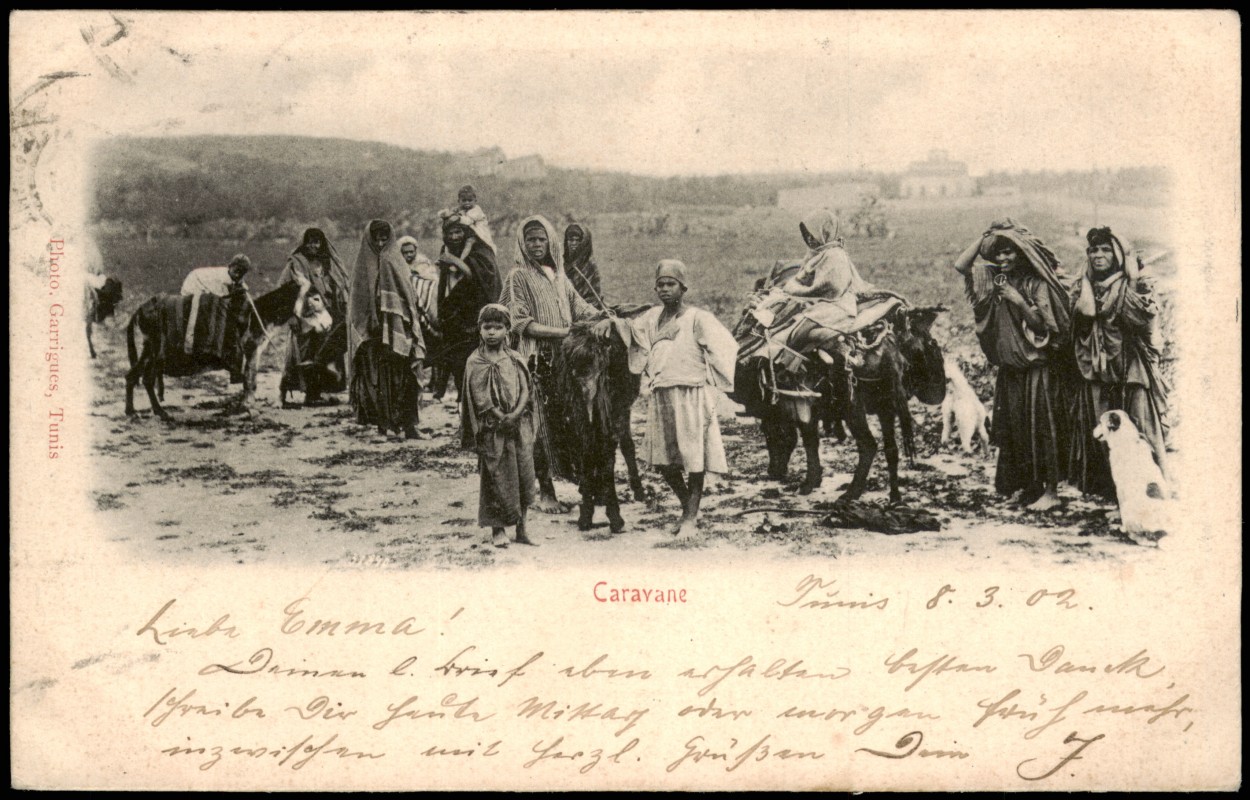 Photo. Garrigues, Tunis
Caravane
Tunis 8. 3. 02.
Liebe Emma!
Deinen l. Brief eben erhalten besten Danck,
schreibe Dir heute Mittag oder morgen früh mehr,
inzwischen mit herzl. Grüßen Dein J.